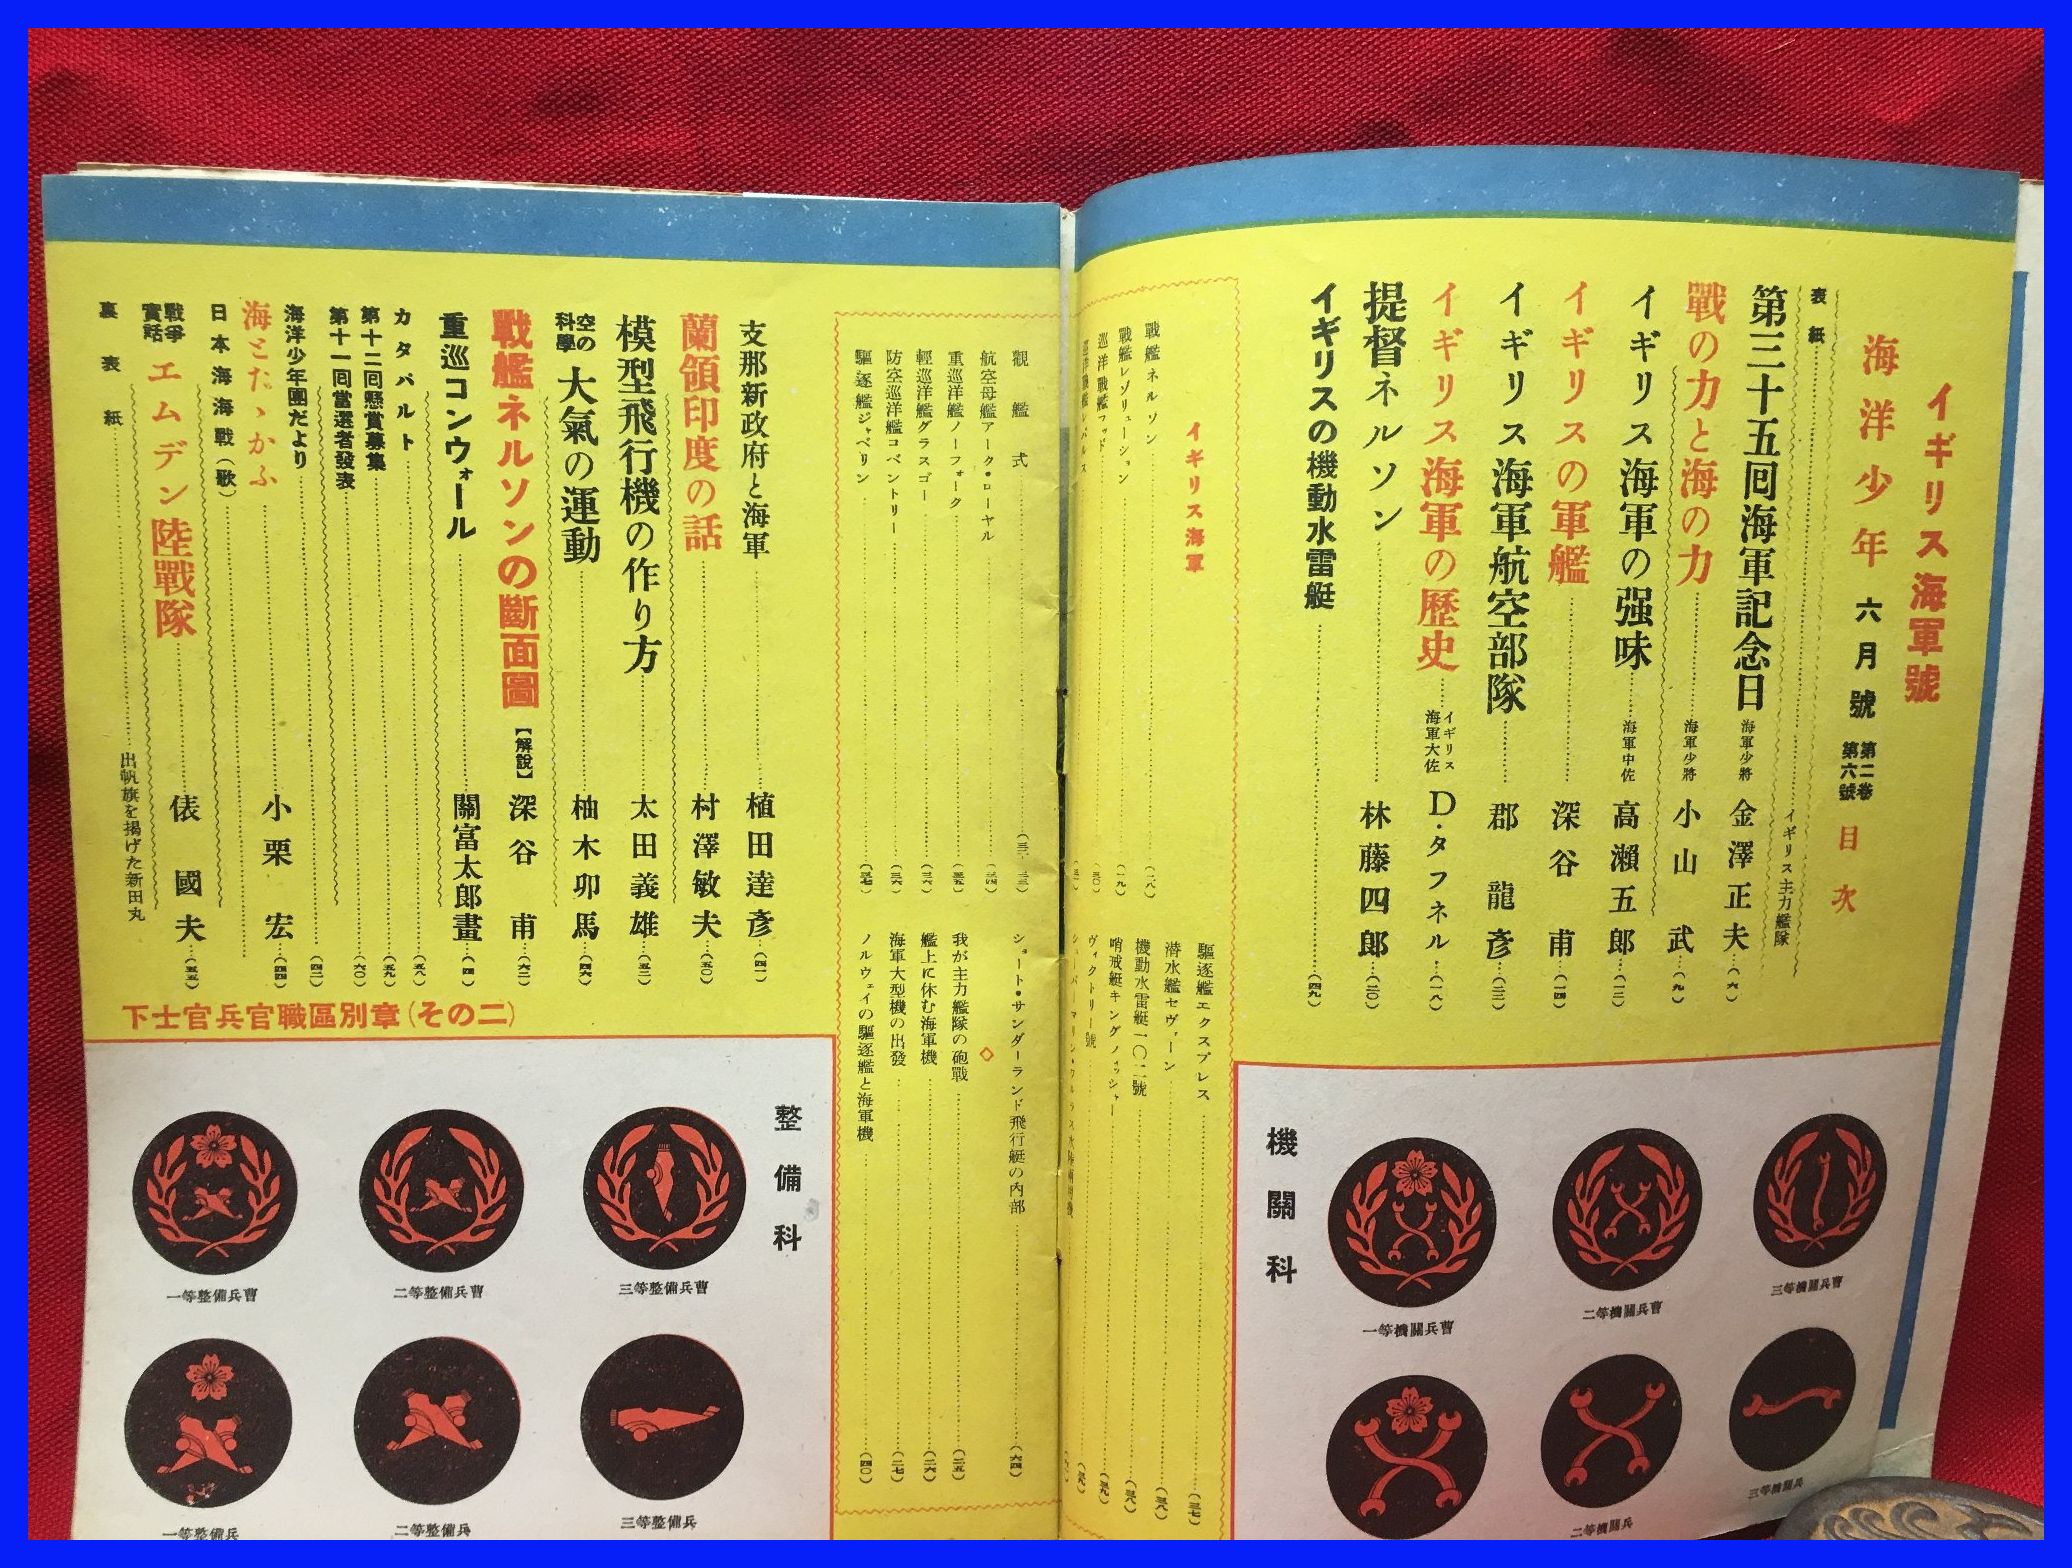 イギリス海軍號
海洋少年 六月號 第二卷第六號 目次
表紙 イギリス主力艦隊
第三十五回海軍記念日 海軍少將 金澤正夫 (六)
戰の力と海の力 海軍少將 小山武 (九)
イギリス海軍の强味 海軍中佐 高瀨五郎 (一二)
イギリスの軍艦 深谷甫 (一四)
イギリス海軍航空部隊 郡龍彥
イギリス海軍の歷史 イギリス海軍大佐 D・タフネル (一八)
提督ネルソン 林藤四郎
イギリスの機動水雷艇 (四九)
イギリス海軍
戰艦ネルソン (一八)
戰艦レゾリューション (一九)
巡洋戰艦フッド
觀艦式
航空母艦アーク・ローヤル
重巡洋艦ノーフォーク
輕巡洋艦グラスゴー
防空巡洋艦コベントリー
驅逐艦ジャベリン
驅逐艦エクスプレス
潛水艦セヴァーン
機動水雷艇一〇二號
哨戒艇キングフィッシャー
ヴィクトリー號
ショート・サンダーランド飛行艇の內部 (六四)
◇
我が主力艦隊の砲戰 (二五)
艦上に休む海軍機 (二六)
海軍大型機の出發 (二七)
ノルウェイの驅逐艦と海軍機 (四〇)
支那新政府と海軍 植田達彥 (四一)
蘭領印度の話 村澤敏夫 (五〇)
模型飛行機の作り方 太田義雄 (五二)
空の科學 大氣の運動 柚木卯馬 (四六)
戰艦ネルソンの斷面圖【解說】 深谷甫 (六二)
重巡コンウォール 關富太郎畫
カタパルト (五八)
第十二回懸賞募集 (五九)
第十一回當選者發表 (六〇)
海洋少年團だより (四二)
海とたゝかふ 小栗宏 (四四)
日本海海戰(歌)
戰爭實話 エムデン陸戰隊 俵國夫 (五五)
裏表紙 出帆旗を揭げた新田丸
下士官兵官職區別章(その二)
機關科
三等機關兵曹
二等機關兵曹
一等機關兵曹
三等機關兵
二等機關兵
整備科
三等整備兵曹
二等整備兵曹
一等整備兵曹
三等整備兵
二等整備兵
一等整備兵